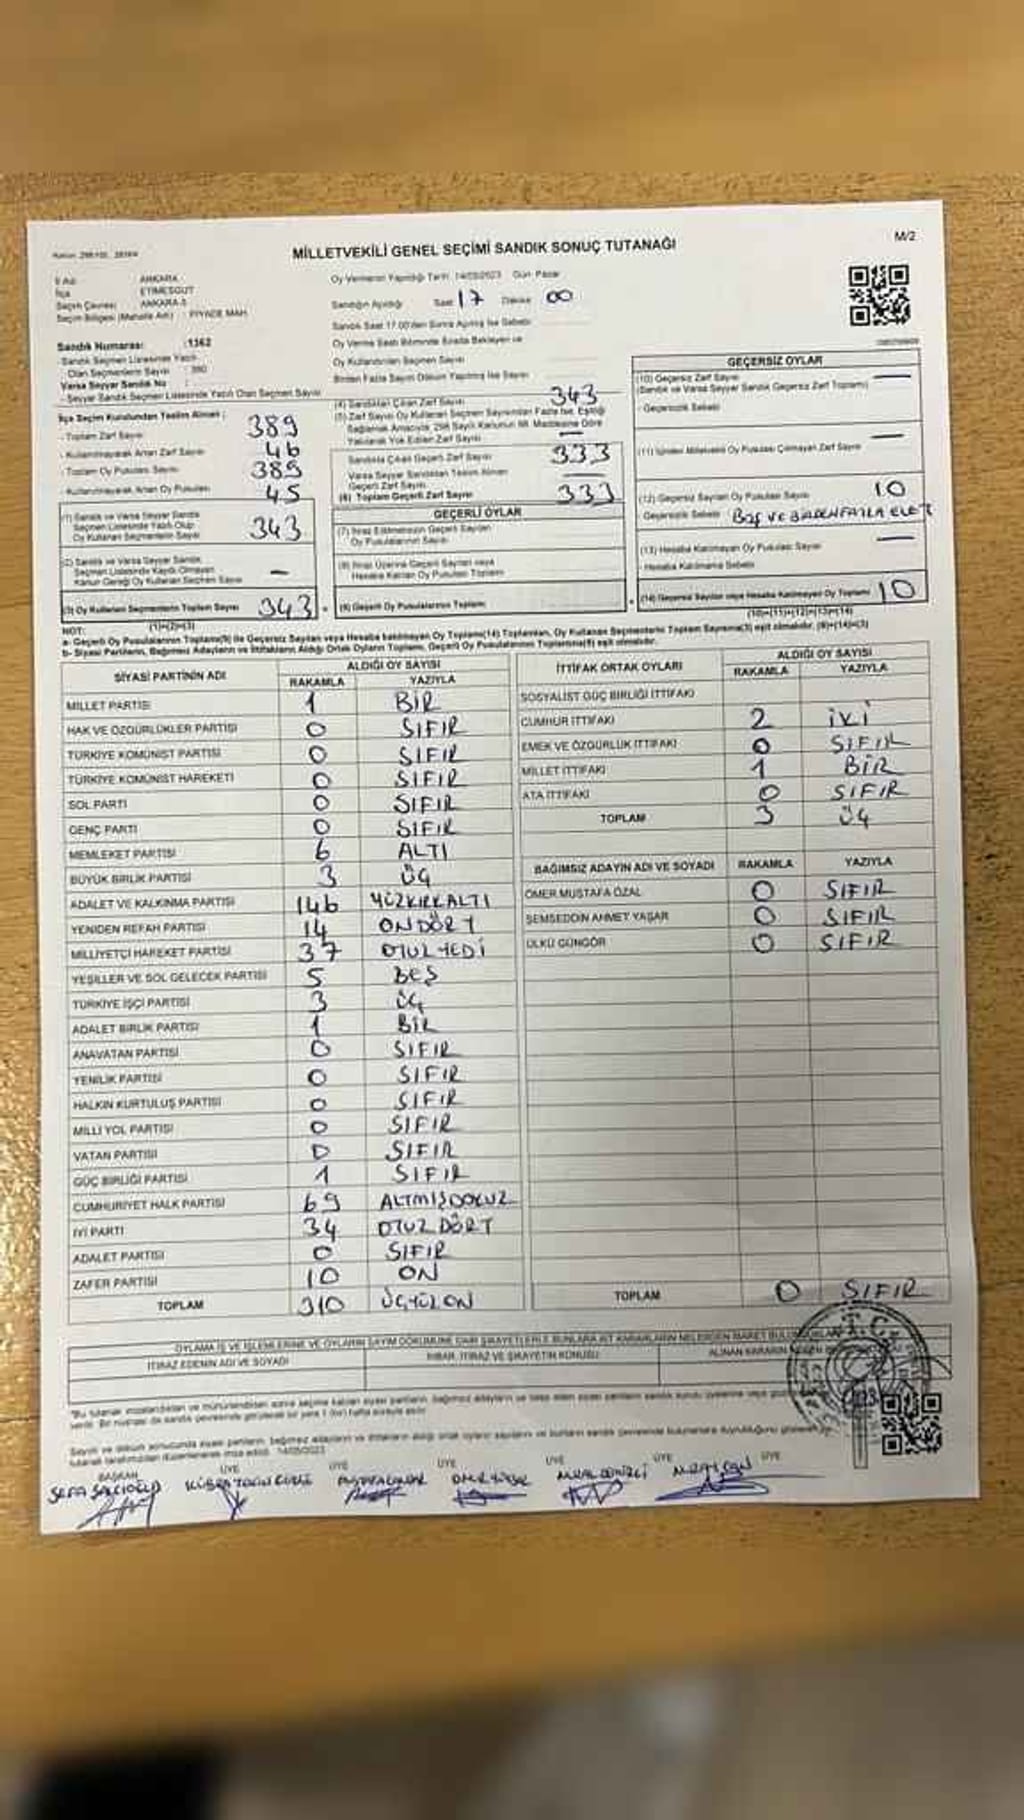 M/2
MİLLETVEKİLİ GENEL SEÇİMİ SANDIK SONUÇ TUTANAĞI
İl Adı : ANKARA
İlçe : ETİMESGUT
Seçim Çevresi : ANKARA-3
Seçim Bölgesi (Mahalle Adı) : PİYADE MAH.
Sandık Numarası :1362
Oy Vermenin Yapıldığı Tarih: 14/05/2023 Gün: Pazar
Sandığın Açıldığı Saat 17 Dakika 00
Sandık Saat 17.00'den Sonra Açılmış İse Sebebi
Oy Verme Saati Bitiminde Sırada Bekleyen ve
Oy Kullandırılan Seçmen Sayısı
Birden Fazla Sayım Döküm Yapılmış İse Sayısı
Sandık Seçmen Listesinde Yazılı
Olan Seçmenlerin Sayısı : 380
Varsa Seyyar Sandık No :
- Seyyar Sandık Seçmen Listesinde Yazılı Olan Seçmen Sayısı
İlçe Seçim Kurulundan Teslim Alınan :
- Toplam Zarf Sayısı 389
- Kullanılmayarak Artan Zarf Sayısı 46
- Toplam Oy Pusulası Sayısı 389
- Kullanılmayarak Artan Oy Pusulası 45
(1) Sandık ve Varsa Seyyar Sandık
Seçmen Listesinde Yazılı Olup
Oy Kullanan Seçmenlerin Sayısı 343
(2) Sandık ve Varsa Seyyar Sandık
Seçmen Listesinde Kaydı Olmayan
Kanun Gereği Oy Kullanan Seçmen Sayısı —
(3) Oy Kullanan Seçmenlerin Toplam Sayısı 343
(1)+(2)=(3)
(4) Sandıktan Çıkan Zarf Sayısı 343
(5) Zarf Sayısı Oy Kullanan Seçmen Sayısından Fazla İse, Eşitliği
Sağlamak Amacıyla, 298 Sayılı Kanunun 98. Maddesine Göre
Yakılarak Yok Edilen Zarf Sayısı —
Sandıkta Çıkan Geçerli Zarf Sayısı 333
Varsa Seyyar Sandıktan Teslim Alınan
Geçerli Zarf Sayısı —
(6) Toplam Geçerli Zarf Sayısı 333
GEÇERLİ OYLAR
(7) İtiraz Edilmeksizin Geçerli Sayılan
Oy Pusulalarının Sayısı
(8) İtiraz Üzerine Geçerli Sayılan veya
Hesaba Katılan Oy Pusulası Toplamı
(9) Geçerli Oy Pusulalarının Toplamı
GEÇERSİZ OYLAR
(10) Geçersiz Zarf Sayısı —
(Sandık ve Varsa Seyyar Sandık Geçersiz Zarf Toplamı)
- Geçersizlik Sebebi
(11) İçinden Milletvekili Oy Pusulası Çıkmayan Zarf Sayısı —
(12) Geçersiz Sayılan Oy Pusulası Sayısı 10
Geçersizlik Sebebi BOŞ VE BİRDEN FAZLA
(13) Hesaba Katılmayan Oy Pusulası Sayısı —
- Hesaba Katılmama Sebebi
(14) Geçersiz Sayılan veya Hesaba Katılmayan Oy Toplamı 10
(10)+(11)+(12)+(13)=(14)
NOT:
a- Geçerli Oy Pusulalarının Toplamı(9) ile Geçersiz Sayılan veya Hesaba katılmayan Oy Toplamı(14) Toplamları, Oy Kullanan Seçmenlerin Toplam Sayısına(3) eşit olmalıdır. (9)+(14)=(3)
b- Siyasi Partilerin, Bağımsız Adayların ve İttifakların Aldığı Ortak Oyların Toplamı, Geçerli Oy Pusulalarının Toplamına(9) eşit olmalıdır.
SİYASİ PARTİNİN ADI ALDIĞI OY SAYISI
RAKAMLA YAZIYLA
MİLLET PARTİSİ 1 BİR
HAK VE ÖZGÜRLÜKLER PARTİSİ 0 SIFIR
TÜRKİYE KOMÜNİST PARTİSİ 0 SIFIR
TÜRKİYE KOMÜNİST HAREKETİ 0 SIFIR
SOL PARTİ 0 SIFIR
GENÇ PARTİ 0 SIFIR
MEMLEKET PARTİSİ 6 ALTI
BÜYÜK BİRLİK PARTİSİ 3 ÜÇ
ADALET VE KALKINMA PARTİSİ 146 YÜZKIRKALTI
YENİDEN REFAH PARTİSİ 14 ONDÖRT
MİLLİYETÇİ HAREKET PARTİSİ 37 OTUZ YEDİ
YEŞİLLER VE SOL GELECEK PARTİSİ 5 BEŞ
TÜRKİYE İŞÇİ PARTİSİ 3 ÜÇ
ADALET BİRLİK PARTİSİ 1 BİR
ANAVATAN PARTİSİ 0 SIFIR
YENİLİK PARTİSİ 0 SIFIR
HALKIN KURTULUŞ PARTİSİ 0 SIFIR
MİLLİ YOL PARTİSİ 0 SIFIR
VATAN PARTİSİ 0 SIFIR
GÜÇ BİRLİĞİ PARTİSİ 1 SIFIR
CUMHURİYET HALK PARTİSİ 69 ALTMIŞDOKUZ
İYİ PARTİ 34 OTUZ DÖRT
ADALET PARTİSİ 0 SIFIR
ZAFER PARTİSİ 10 ON
TOPLAM 310 ÜÇYÜZ ON
İTTİFAK ORTAK OYLARI ALDIĞI OY SAYISI
RAKAMLA YAZIYLA
SOSYALİST GÜÇ BİRLİĞİ İTTİFAKI
CUMHUR İTTİFAKI 2 İKİ
EMEK VE ÖZGÜRLÜK İTTİFAKI 0 SIFIR
MİLLET İTTİFAKI 1 BİR
ATA İTTİFAKI 0 SIFIR
TOPLAM 3 ÜÇ
BAĞIMSIZ ADAYIN ADI VE SOYADI RAKAMLA YAZIYLA
ÖMER MUSTAFA ÖZAL 0 SIFIR
ŞEMSEDDİN AHMET YAŞAR 0 SIFIR
ÜLKÜ GÜNGÖR 0 SIFIR
TOPLAM 0 SIFIR
OYLAMA İŞ VE İŞLEMLERİNE VE OYLARIN SAYIM DÖKÜMÜNE DAİR ŞİKAYETLERLE BUNLARA AİT KARARLARIN NELERDEN İBARET
İTİRAZ EDENİN ADI VE SOYADI
İHBAR, İTİRAZ VE ŞİKAYETİN KONUSU
ALINAN KARARIN
T.C.
BAŞKAN ÜYE ÜYE ÜYE ÜYE ÜYE ÜYE